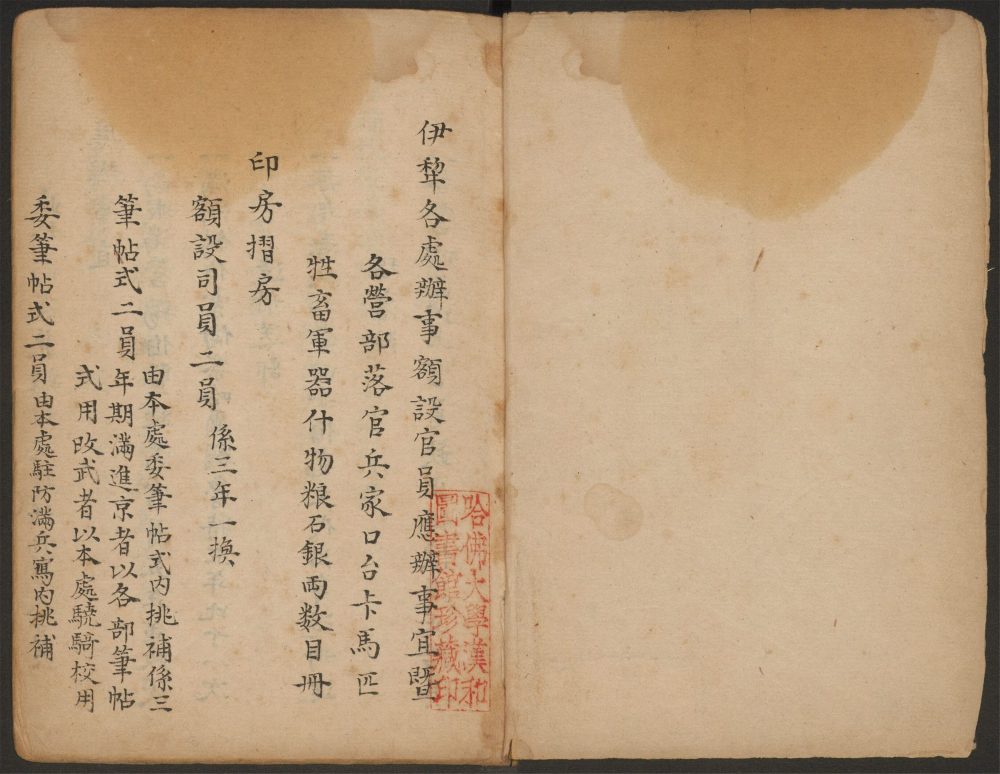 伊犂各處辦事額設官員應辦事宜暨
各營部落官兵家口台卡馬匹
牲畜軍器什物粮石銀両数目冊
印房摺房
額設司員二員 係三年一換
筆帖式二員 由本處委筆帖式內挑補係三
年期滿進京者以各部筆帖
式用改武者以本處驍騎校用
委筆帖式二員 由本處駐防滿兵寫內挑補
哈佛大學漢和
圖書館珍藏印